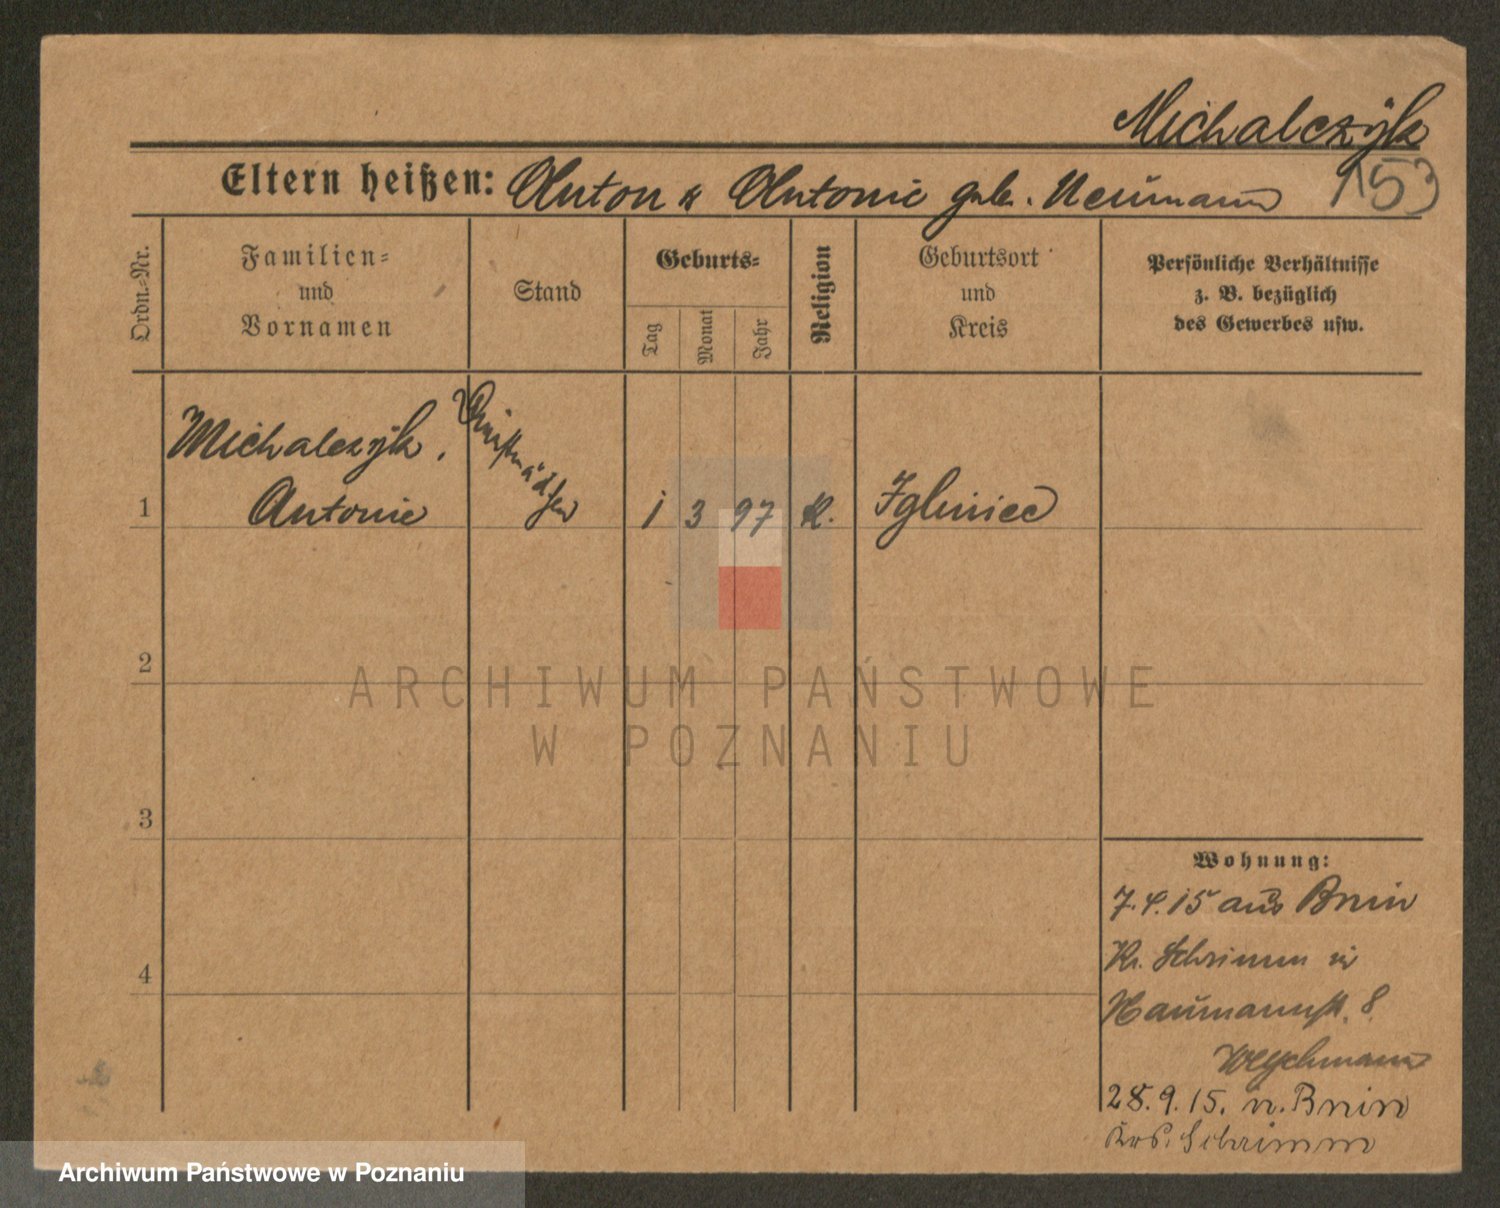 Michalczÿk
153
Eltern heißen: Anton u Antonie geb. Neumann
Ordn.-Nr.
Familien-
und
Vornamen
Stand
Geburts-
Tag
Monat
Jahr
Religion
Geburtsort
und
Kreis
Persönliche Verhältnisse
z. B. bezüglich
des Gewerbes usw.
Michalczÿk.
Dienstmädchen
1 Antonie 1 3 97 K. Igliniec
2
3
4
ARCHIWUM PAŃSTWOWE
W POZNANIU
Wohnung:
7.4.15 aus Bnin
Kr. Schrimm in
Naumannstr. 8.
28.9.15. n. Bnin
Krs. Schrimm
Archiwum Państwowe w Poznaniu